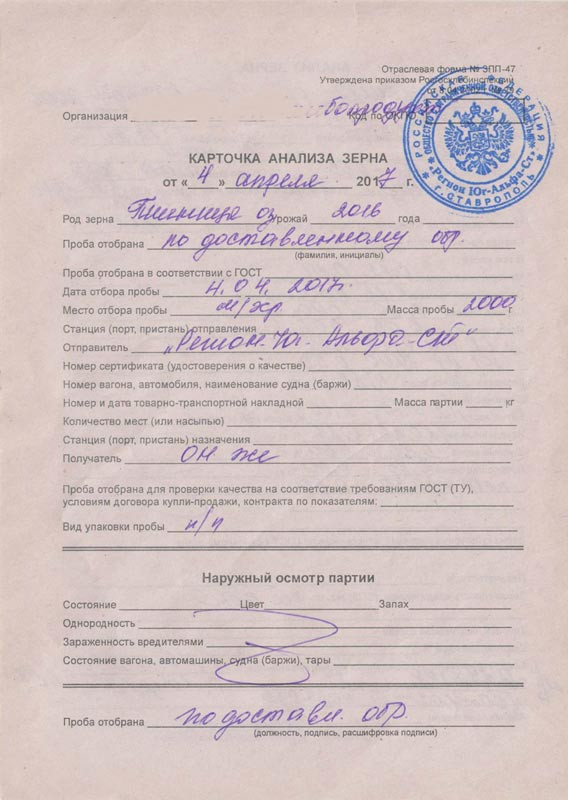 Отраслевая форма № ЗПП-47
Утверждена приказом Росгосхлебинспекции
Организация
Код по ОКПО
РОССИЙСКАЯ ФЕДЕРАЦИЯ
"Регион Юг-Альфа-Ст"
г. СТАВРОПОЛЬ
КАРТОЧКА АНАЛИЗА ЗЕРНА
от «4» апреля 2017 г.
Род зерна Пшеница оз Урожай 2016 года
Проба отобрана по доставленному обр.
(фамилия, инициалы)
Проба отобрана в соответствии с ГОСТ
Дата отбора пробы 4.04.2017г.
Место отбора пробы м/хр. Масса пробы 2000 г
Станция (порт, пристань) отправления
Отправитель „Регион-Юг-Альфа-Ст"
Номер сертификата (удостоверения о качестве)
Номер вагона, автомобиля, наименование судна (баржи)
Номер и дата товарно-транспортной накладной Масса партии кг
Количество мест (или насыпью)
Станция (порт, пристань) назначения
Получатель он же
Проба отобрана для проверки качества на соответствие требованиям ГОСТ (ТУ),
условиям договора купли-продажи, контракта по показателям:
Вид упаковки пробы п/п
Наружный осмотр партии
Состояние Цвет Запах
Однородность
Зараженность вредителями
Состояние вагона, автомашины, судна (баржи), тары
Проба отобрана по доставл. обр.
(должность, подпись, расшифровка подписи)